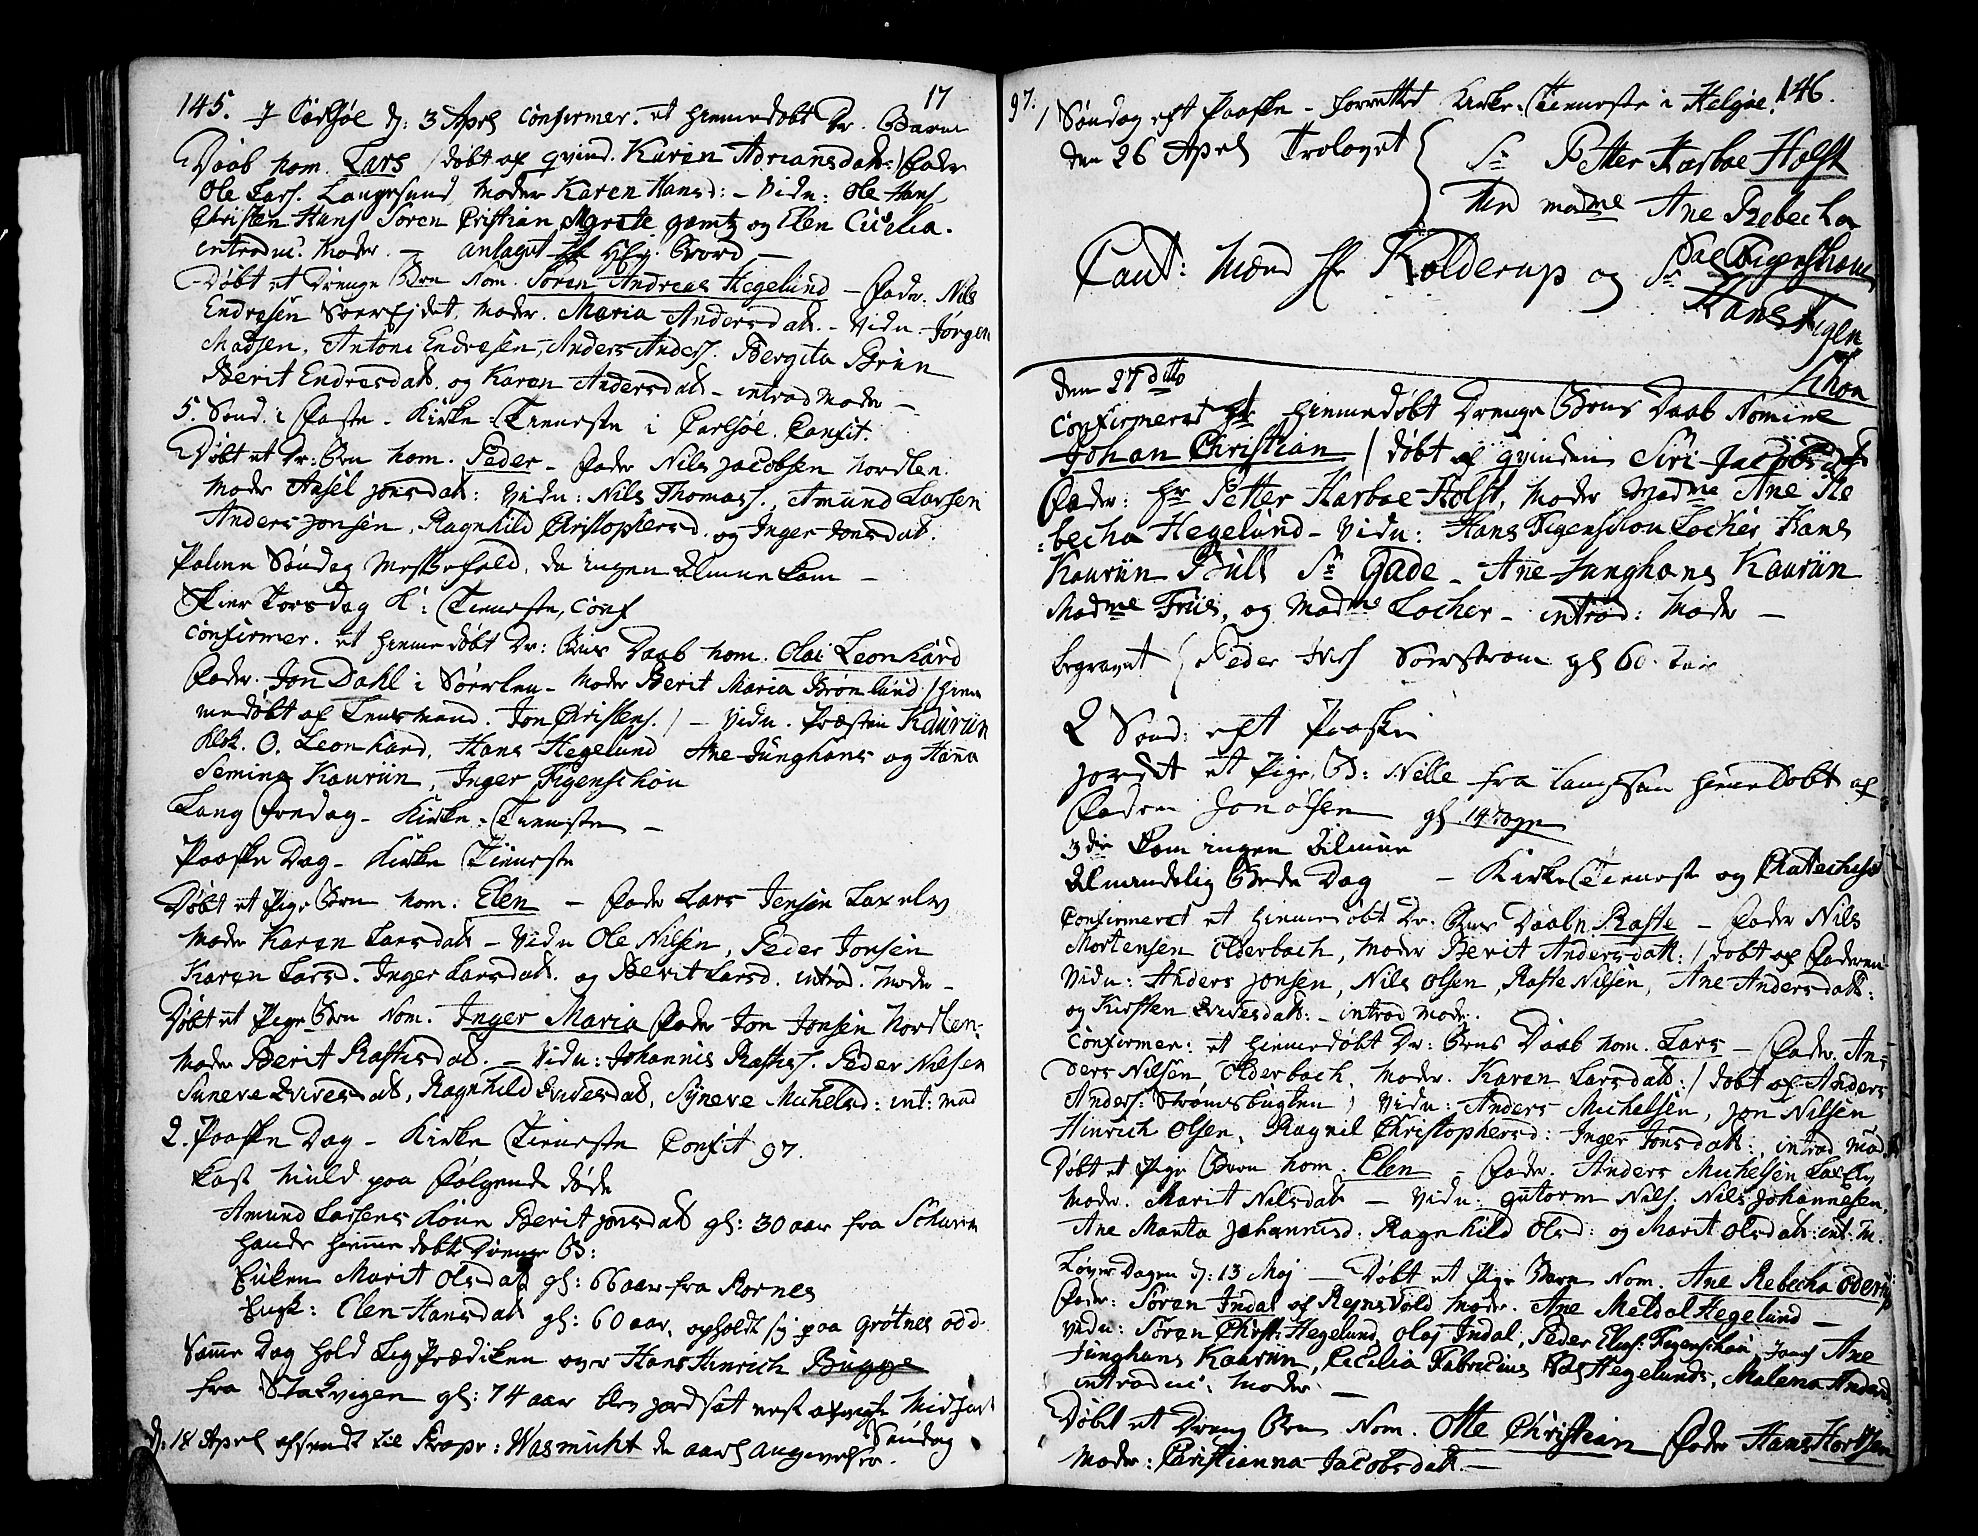 145. 17
J Carlsöe d: 3 April confirmer. et hiemmedøbt Dr. Barns
Daab nom. Lars /døbt af qvind. Karen Adriansdatr:/ Fader
Ole Lars. Langesund, Moder Karen Hansd: - Vidn: Ole Hans.
Christen Hans. Sören Cristian, Marete Jamtz og Elen Cicelia.
introduc. Moder. - anlaget
Døbt et Drenge Brn Nom. Sören Andreas Hegelund - Fader. Nils
Endresen Soerfjdet, Moder. Maria Andersdatr. - Vidn - Jörgen
Madsen, Antoni Endresen, Anders Anders. Bergita Brün
Berit Endresdatr. og Karen Andersdatr - introd Moder -
5. Sönd. i Faste - Kirke-Tieneste i Carlsöe. Confit.
Døbt et Dr: Brn nom. Peder - Fader Nils Jacobsen Nordlen.
Moder Ansel Jonsdatr: Vidn: Nils Thomass., Amund Larsen
Anders Jonsen, Ragnhild Christophersd. og Inger Jonsdatr.
Palme Söndag Messefald, da ingen Almue kom -
Skier Torsdag K: Tieneste, Conf
Confirmer. et hiemmedøbt Dr: Brns Daab nom. Olai Leonhard
Fader. Jon Dahl i Söerlen - Moder Berit Maria Brönlund /hiem
medøbt af Lensmand. Jon Christens./ - Vidn. Præsten Kaurün
Klok. O. Leonhard, Hans Hegelund Ane Junghans og Hanna
Semina Kaurün, Inger Figenschou
Lang Fredag - Kirke-Tieneste -
Paaske Dag - Kirke Tieneste
Døbt et Pige Brn nom. Elen - Fader Lars Jensen Laxelv
Moder Karen Larsdatr - Vidn Ole Nilsen, Peder Jonsen
Karen Larsd. Inger Larsdatr. og Berit Larsd. introd. Moder -
Døbt et Pige Brn Nom. Inger Maria Fader Jon Jonsen Nordlen:
Moder Berit Rastesdatr. - Vidn: Johannis Rastes. Peder Nilsen
Suneva Qvivesdatr, Ragnhild Qvivesdatr, Syneve Michelsd: int: mod
2. Paaske Dag - Kirke Tieneste Confit 97.
Kast Muld paa Følgende døde
Amund Larsens Kone Berit Jonsdatr gl: 30 aar fra
hendes hiemme døbte Drenge B:
Enken Marit Olsdatr gl: 66 aar fra Kornes
Enk: Elen Hansdatr gl: 60 aar, opholdt sig paa Grötnes odd.
Samme Dag hold Lig Prædiken over Hans Hinrich Bugge
fra Stakvigen gl: 74 aar blev jordsat Midfast
Söndag
d: 18 April afsendt til Skropr: Wasmuht de aarl angivelser.
97. 146.
1 Söndag eft Paaske - forrettet Kirke-Tieneste i Helgöe.
den 26 April Trolovet Sr Petter Harboe Holst
Med madme Ane Rebecha
Figenschou
Caut: Mænd Hr Kolderup og Sr Hans Figen
schou
den 27 ditto
Confirmeret hiemmedøbt Drenge Brns Daab Nomine
Johan Christian / døbt af qvinden Siri Jacobsd
Fader: Hr Petter Harboe Holst, Moder Madme Ane Re
becha Hegelund - Vidn: Hans Figenschou Locher, Hans
Kaurün Büll Sr Gade - Ane Junghans Kaurün
Madme Friis, og Madme Locher - introd: Moder -
begravet Peder Ivers Söerstrøm gl 60 aar
2 Sönd: eft Paaske
jordet et Pige B: Nille fra Langsun hiemdøbt af
Faderen Jon Olsen gl 14 Dage
3die Kom ingen Almue
Almindelig Bede Dag - Kirke Tieneste og Chatechis
Confirmeret et hiemmedøbt Dr: Brns Daab n. Raste - Fader Nils
Mortensen Olderbach, Moder Berit Andersdatr:/ døbt af Faderen
Vidn: Anders Jonsen, Nils Olsen, Raste Nilsen, Ane Andersdatr:
og Kirsten Qvivesdatr: - introd Moder.
Confirmer: et hiemmedøbt Dr: Brns Daab nom. Lars - Fader. An-
ders Nilsen, Olderbach, Moder. Karen Larsdatr:/ døbt af Anders
Anders: Strømsbugten / Vidn: Anders Michelsen, Jon Nilsen
Hinrich Olsen, Ragnil Christophersd: Inger Jonsdatr:, introd Mod.
Døbt et Pige Barn nom. Elen - Fader. Anders Michelsen Lax Elv
Moder. Marit Nilsdatr - Vidn: Gutorm Nils. Nils Johannesen,
Ane Marta Johannisd: Ragnhild Olsd: og Marit Olsdatr: int: M.
Løver Dagen d: 13 Maj - Døbt et Pige Barn Nom. Ane Rebecha Oderup
Fader: Sören Indal af Reynsvold Moder. Ane Meldal Hegelund -
Vidn: Sören Christ: Hegelund, Olaj Indal, Peder Elias: Figenschou, Jomf Ane
Junghans Kaurün, Cecilia Fabricius Hegelunds, Malena Andersd
introduc: Moder -
Døbt et Dreng Brn Nom. Otte Christian Fader Hans Hortsen
Moder: Christianna Jacobsdatr. -